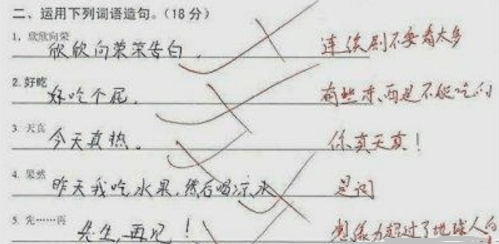 二、运用下列词语造句。(18分)
1、欣欣向荣
欣欣向荣荣告白。 连续剧不要看太多
2. 好吃
好吃个屁。 有些东西是不能吃的
3. 天真
今天真热。 你真天真!
4. 果然
昨天我吃水果,然后喝凉水 是词
5. 先……再
先生,再见! 想像力超过了地球人